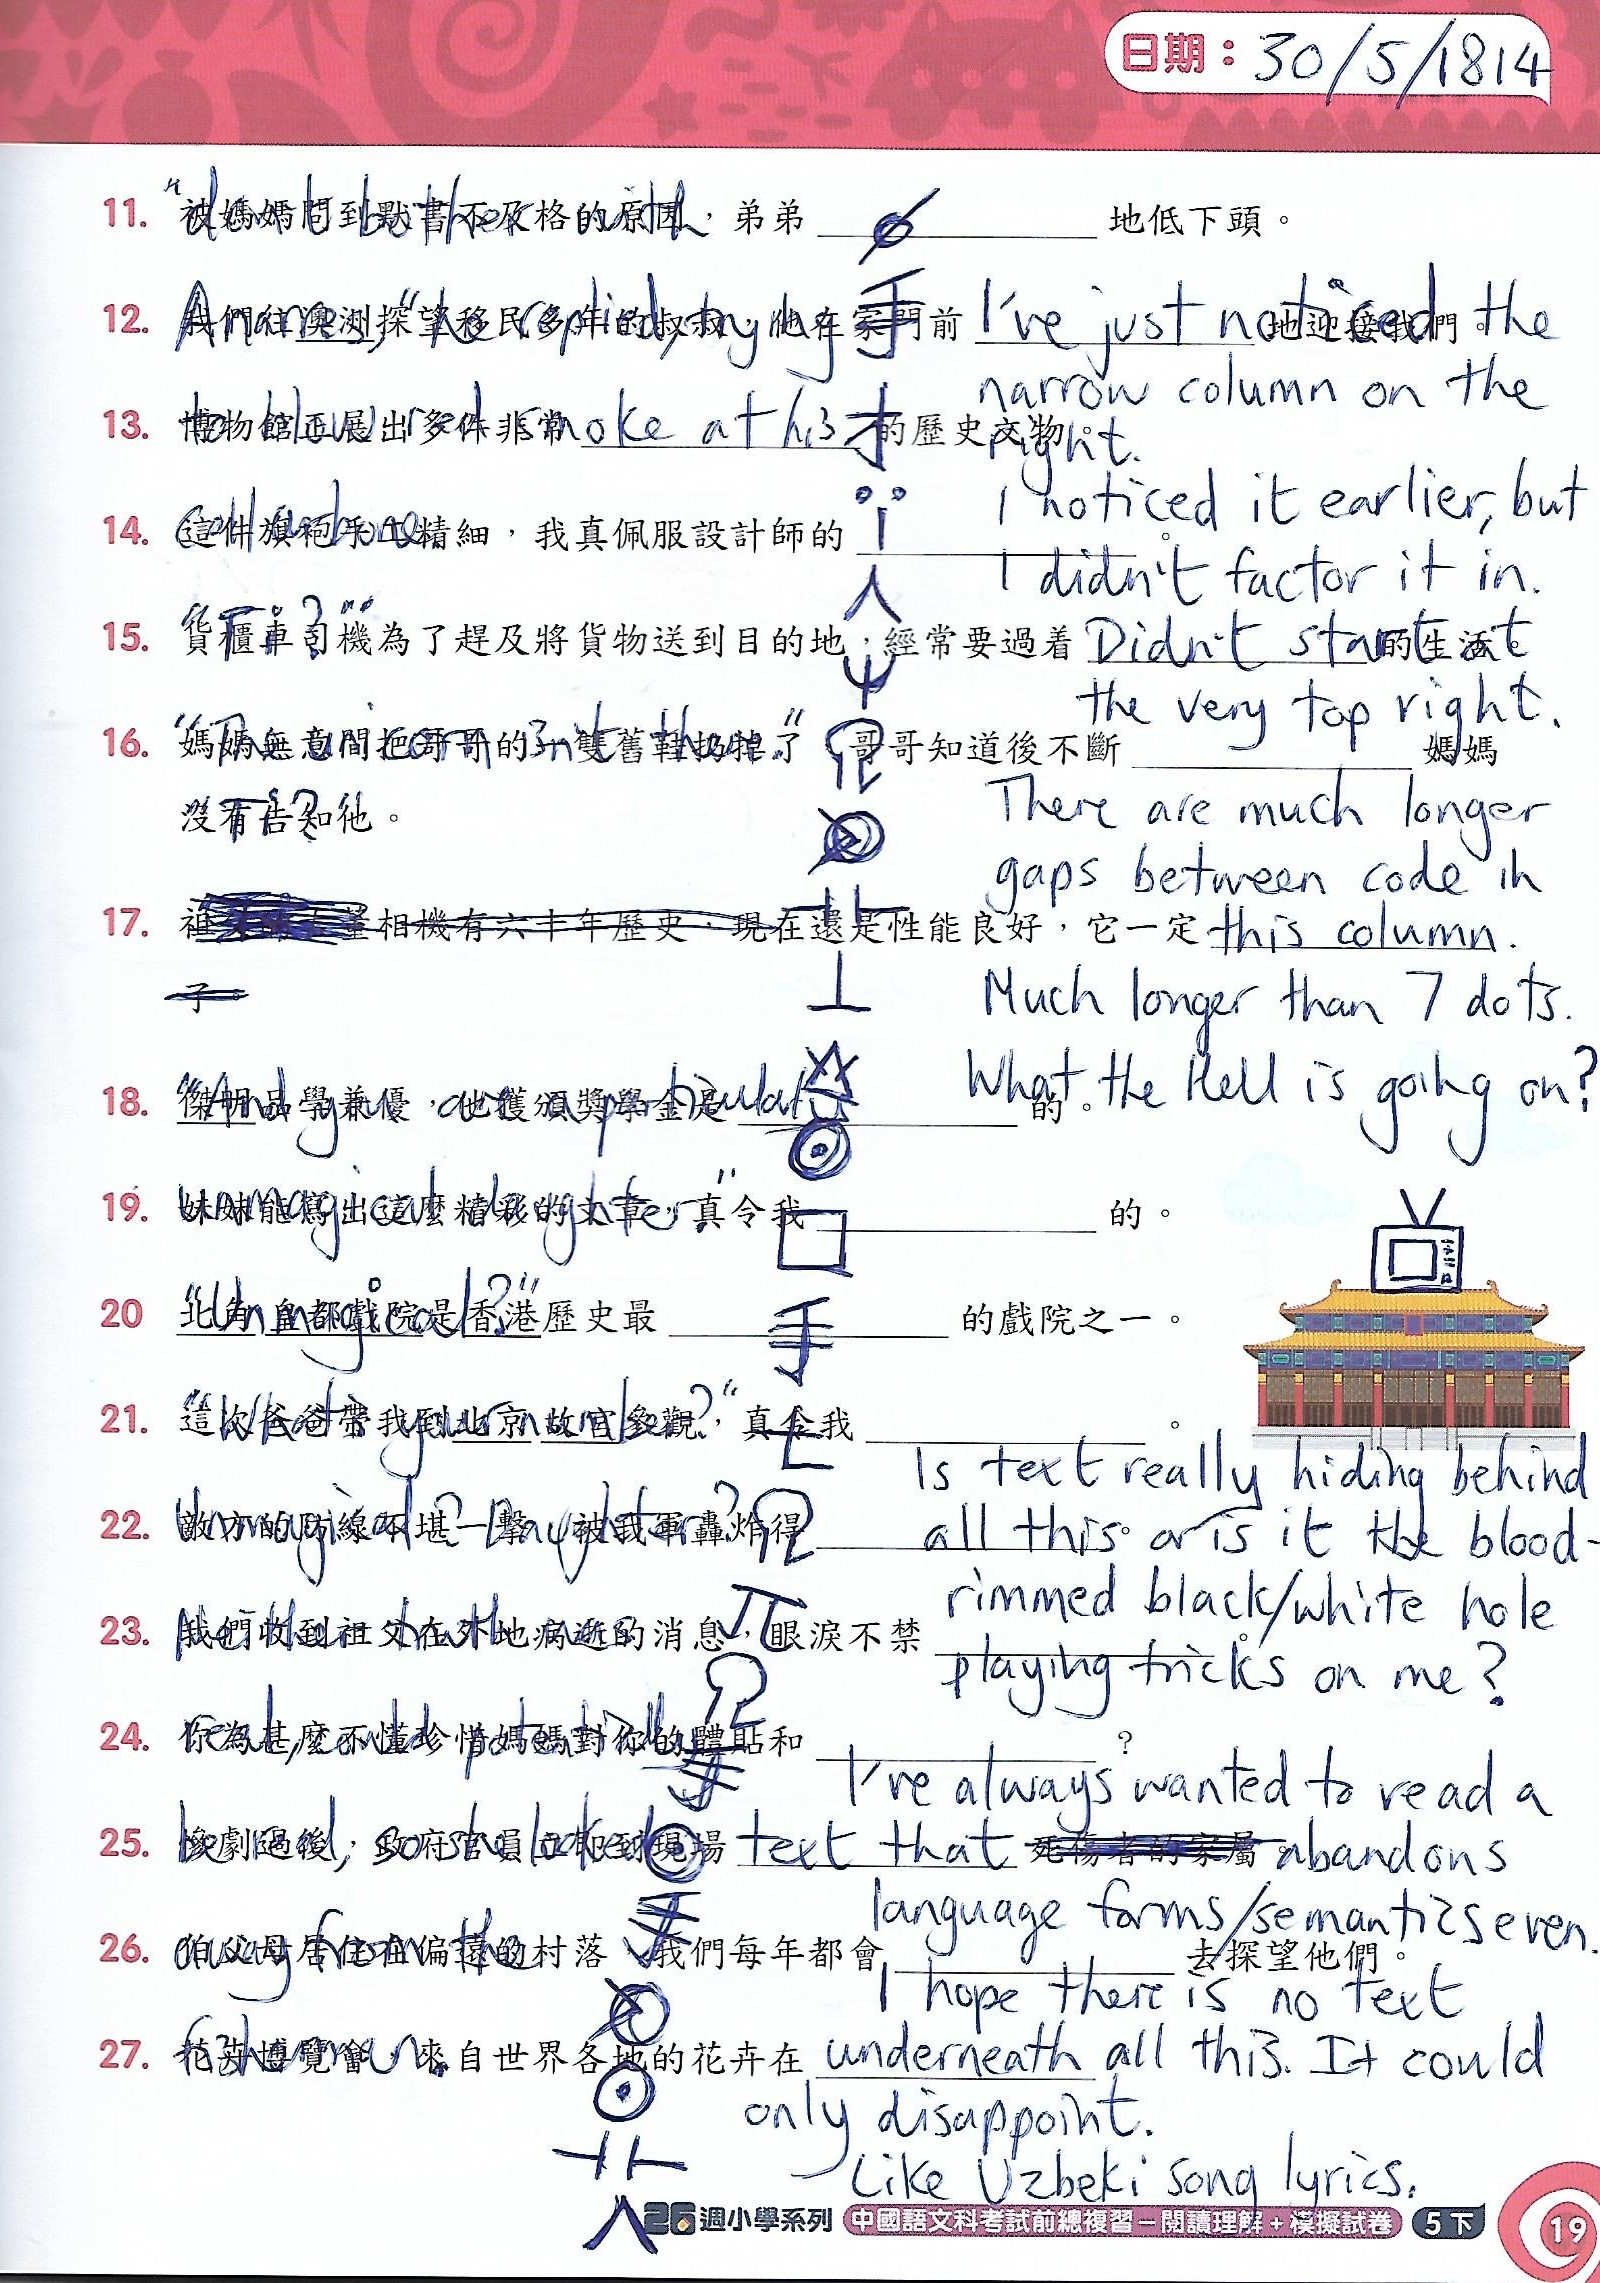 日期：30/5/1814
11. 被媽媽問到默書不及格的原因，弟弟 地低下頭。
12. 我們往澳洲探望移民多年的叔叔，他在家門前 地迎接我們。
Anarres," he replied, trying
I've just noticed the
narrow column on the
right.
13. 博物館正展出多件非常 的歷史文物。
to blow red smoke at his
I noticed it earlier, but
I didn't factor it in.
14. 這件旗袍手工精細，我真佩服設計師的 。
15. 貨櫃車司機為了趕及將貨物送到目的地，經常要過着 的生活。
Didn't start at
the very top right.
16. 媽媽無意間把哥哥的一雙舊鞋扔掉了，哥哥知道後不斷 媽媽
沒有告知他。
"The unicorn isn't there."
There are much longer
gaps between code in
this column.
17. 相機有六十年歷史，現在還是性能良好，它一定
子。
Much longer than 7 dots.
What the Hell is going on?
18. 傑明品學兼優，他獲頒獎學金是 的。
"And you are a particular
19. 妹妹能寫出這麼精彩的文章，真令我 的。
unmagical daughter."
20 北角皇都戲院是香港歷史最 的戲院之一。
"Unmagical?"
21. 這次爸爸帶我到北京故宮參觀，真令我 。
Is text really hiding behind
all this or is it the blood-
rimmed black/white hole
playing tricks on me?
22. 敵方的防線不堪一擊，被我軍轟炸得 。
Unmagical? Daughter?
23. 我們收到祖父在外地病逝的消息，眼淚不禁 。
24. 你為甚麼不懂珍惜媽媽對你的體貼和 ？
I've always wanted to read a
text that abandons
language forms/semantics even.
25. 慘劇過後，政府官員立即到現場 死傷者的家屬。
be read, so she looked
26. 伯父母居住在偏遠的村落，我們每年都會 去探望他們。
away from the
I hope there is no text
underneath all this. It could
only disappoint.
27. 花卉博覽會，來自世界各地的花卉在
fisherman.
Like Uzbeki song lyrics.
26週小學系列 中國語文科考試前總複習－閱讀理解＋模擬試卷 5下 19